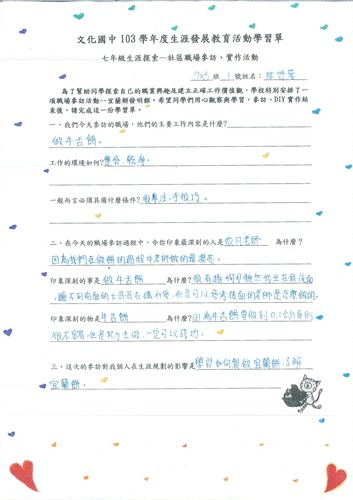 文化國中103學年度生涯發展教育活動學習單
七年級生涯探索—社區職場參訪、實作活動
703班 1號姓名：
為了幫助同學探索自己的職業興趣及建立正確工作價值觀，學校特別安排了一
項職場參訪活動-宜蘭餅發明館。希望同學們用心觀察與學習，參訪、DIY實作結
束後，請完成這一份學習單。
一、我們今天參訪的職場，他們的主要工作內容是什麼？
做牛舌餅。
工作的環境如何？整齊、乾淨。
一般而言必須具備什麼條件？專注、手技巧。
二、在今天的職場參訪過程中，令你印象最深刻的人是 老師 為什麼？
因為我們在做餅的過程中老師做的最漂亮。
印象深刻的事是 做牛舌餅 為什麼？雖然坐在最後面，
聽不到前面的在講什麼，但是可以參考後面的老師是怎麼做的。
印象深刻的物是牛舌餅 為什麼？因為牛舌餅要做到0.1公分真的
很不容易，但是努力去做，一定可以成功。
三、這次的參訪對我個人在生涯規劃的影響是學習如何製做宜蘭餅，了解
宜蘭餅。